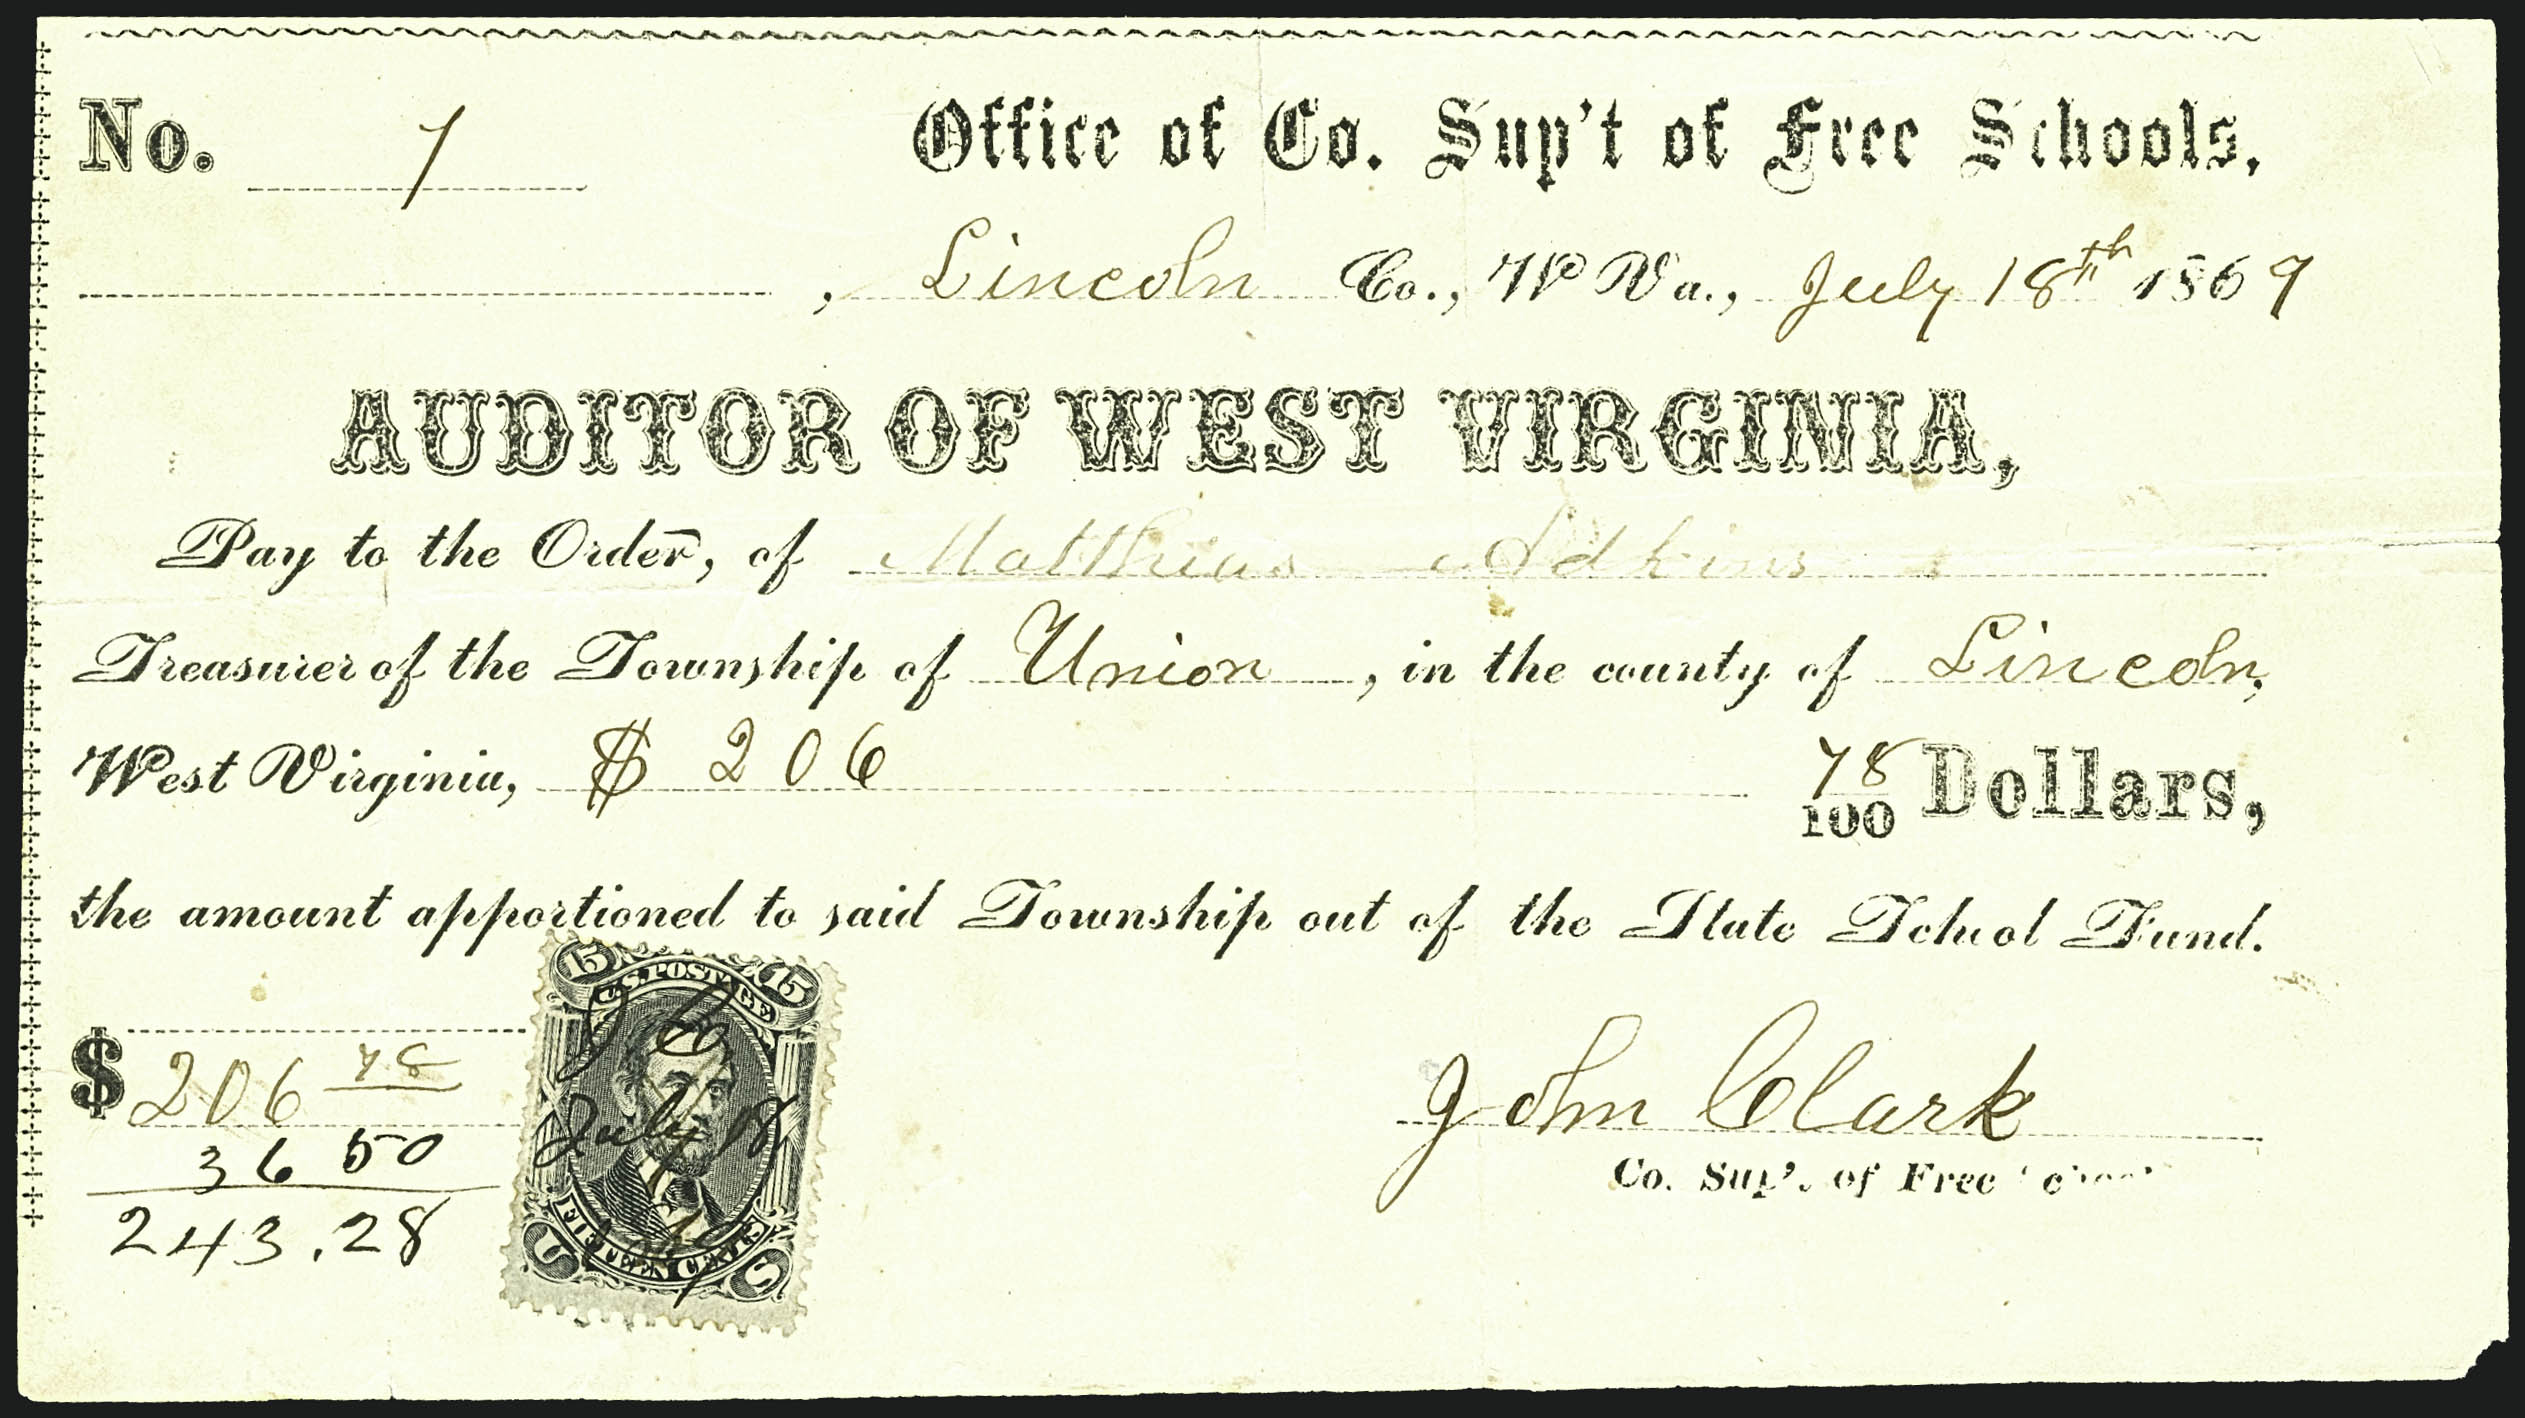 No. 7 Office of Co. Sup't of Free Schools,
, Lincoln Co., W Va., July 18th 1869
AUDITOR OF WEST VIRGINIA,
Pay to the Order, of Matthias Adkins
Treasurer of the Township of Union, in the county of Lincoln,
West Virginia, $ 206 78/100 Dollars,
the amount apportioned to said Township out of the State School Fund.
15 U.S. POSTAGE 15
J. C.
July 18
1869
FIFTEEN CENTS
U S
$ 206 78
36 50
243.28
John Clark
Co. Sup'. of Free